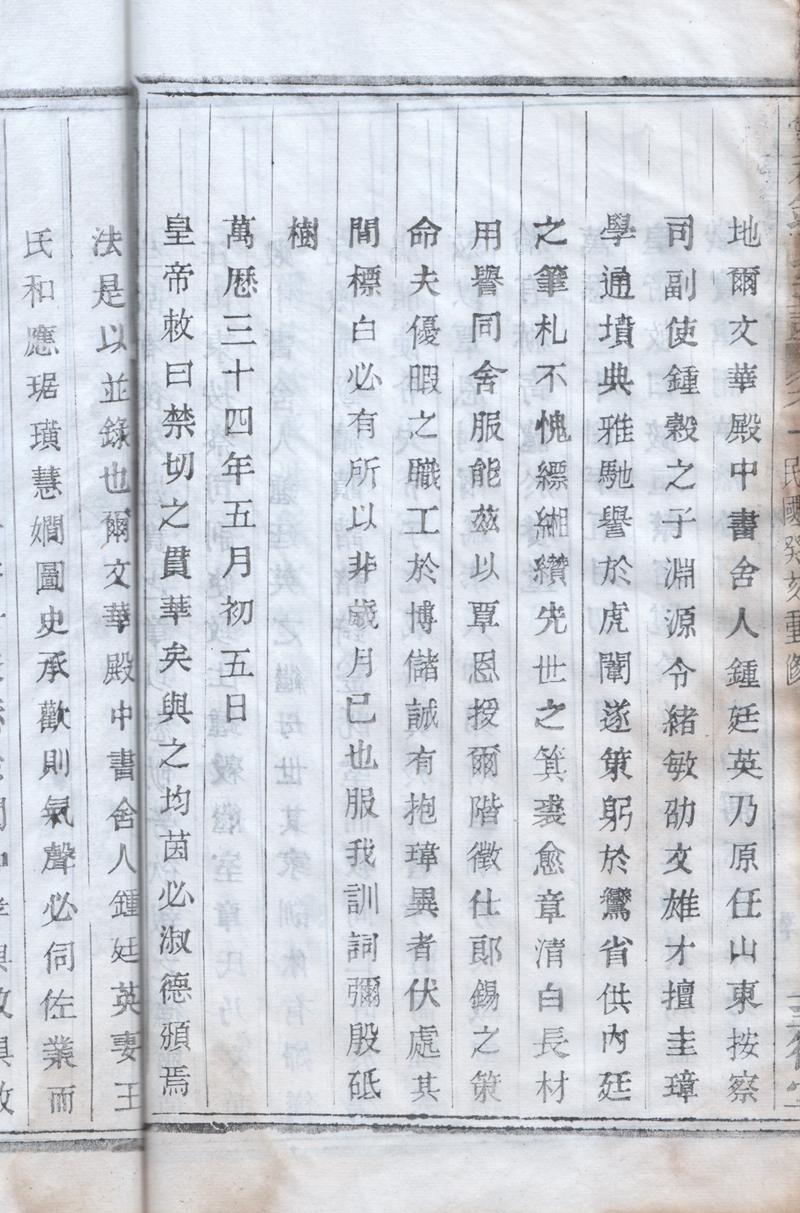 地爾文華殿中書舍人鍾廷英乃原任山東按察
司副使鍾穀之子淵源令緒敏劭文雄才擅圭璋
學通墳典雅馳譽於虎闈遂策躬於鸞省供內廷
之筆札不愧縹緗纘先世之箕裘愈章清白長材
用譽同舍服能茲以覃恩授爾階徵仕郎錫之策
命夫優暇之職工於博儲誠有抱瑋異者伏處其
間標白必有所以非歲月已也服我訓詞彌殷砥
樹
萬曆三十四年五月初五日
皇帝敕曰禁切之貫華矣與之均茵必淑德頯焉
法是以並錄也爾文華殿中書舍人鍾廷英妻王
氏和應琚璜慧嫺圖史承歡則氣聲必伺佐業而
民國癸刻重修